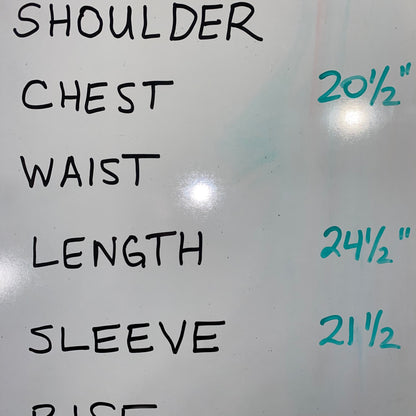 SHOULDER
CHEST 20½"
WAIST
LENGTH 24½"
SLEEVE 21½
RISE